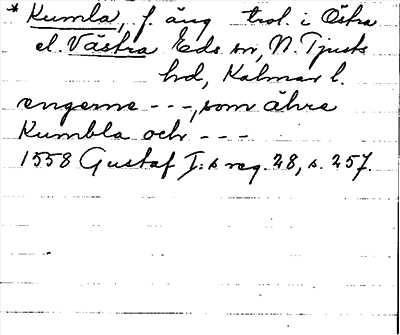 * Kumla, f. äng trol. i Östra
el. Västra Eds sn, N. Tjusts
hd, Kalmar l.
engerne - - -, som ähre
Kumbla och - - -
1558 Gustaf I:s reg. 28, s. 257.